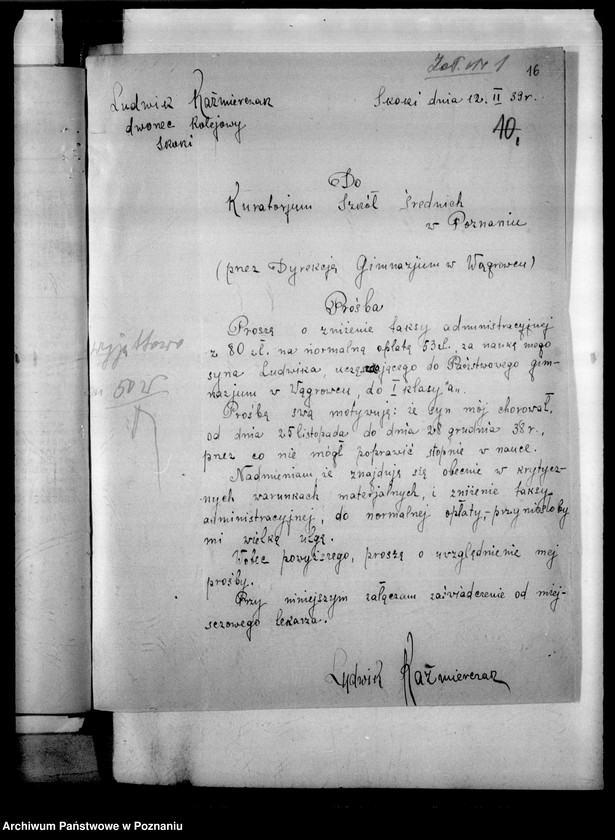 Zał. nr 1
16
Ludwik Kaźmierczak
dworzec kolejowy
Skoki
Skoki dnia 12. II 39 r.
10,
Do
Kuratorjum Szkół Średnich
w Poznaniu
(przez Dyrekcją Gimnazjum w Wągrowcu)
Prośba
Proszą o zniżenie taksy administracyjnej
z 80 zł. na normalną opłatę 53 zł. za naukę mego
syna Ludwika, uczęszczającego do Państwowego gim-
nazjum w Wągrowcu, do I klasy "a".
Prośbą swą motywują: że syn mój chorował,
od dnia 25 listopada do dnia 28 grudnia 38 r.,
przez co nie mógł poprawić stopnie w nauce.
Nadmieniam że znajdują się obecnie w krytycz-
nych warunkach materjalnych, i zniżenie taksy
administracyjnej, do normalnej opłaty, - przyniosłoby
mi wielką ulgą.
Wobec powyższego, proszą o uwzględnienie mej
prośby.
Przy niniejszym załączam zaświadczenie od miej-
sczowego lekarza.
Ludwik Kaźmierczak
wyjątkowo
50 zł
Archiwum Państwowe w Poznaniu